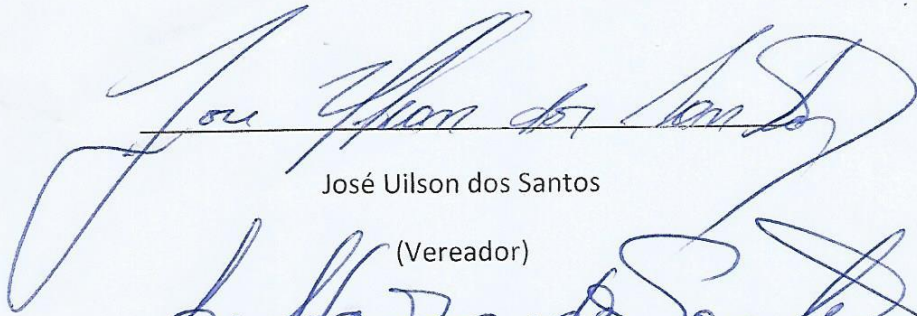 José Uilson dos Santos
José Uilson dos Santos
(Vereador)